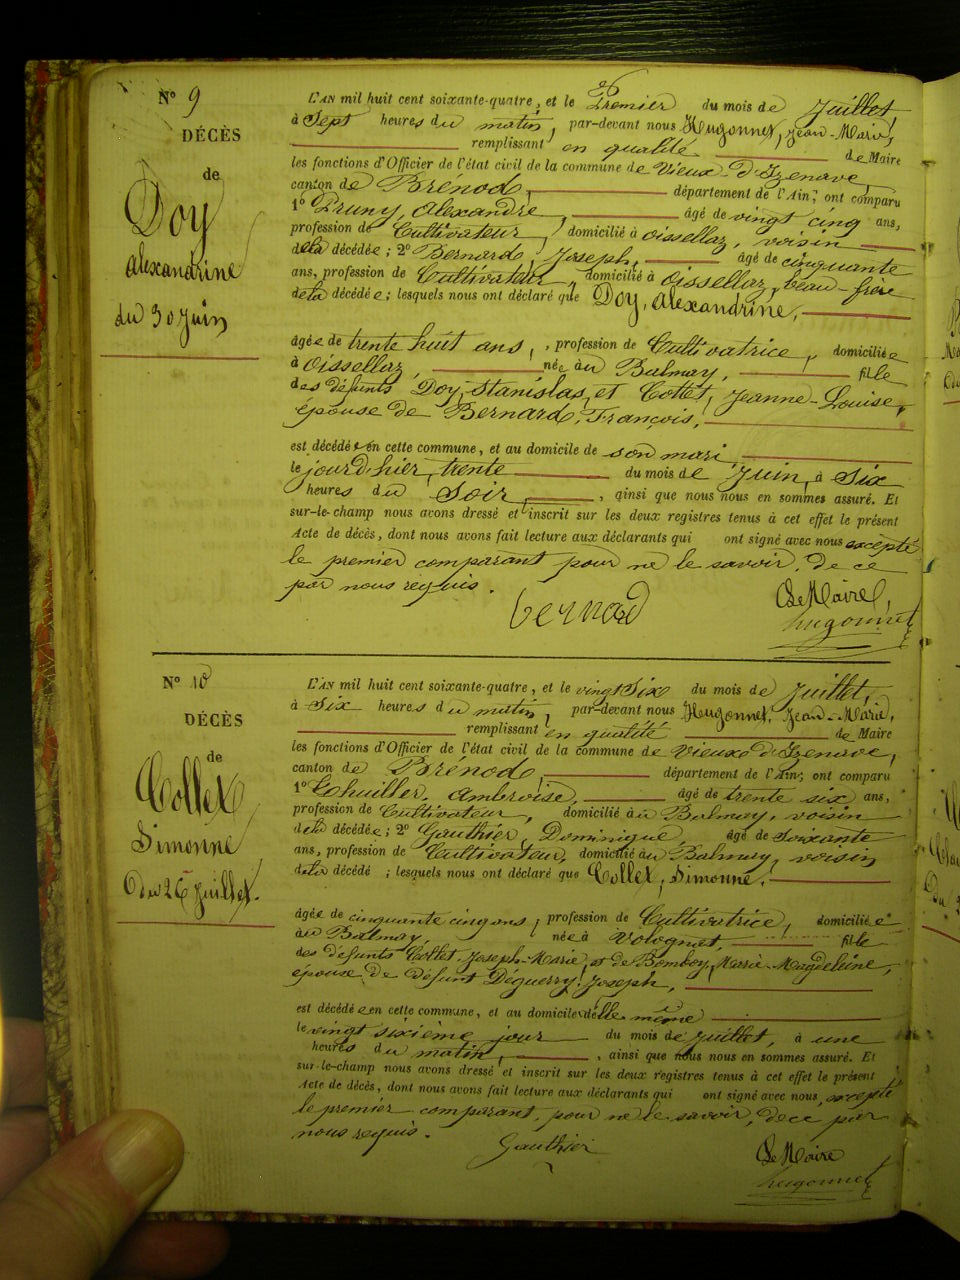 N° 9
DÉCÈS
de
Doy
Alexandrine
du 30 Juin
L'AN mil huit cent soixante-quatre, et le Premier du mois de Juillet,
à Sept heures du matin, par-devant nous Hugonnet, Jean-Marie,
remplissant en qualité de Maire
les fonctions d'Officier de l'état civil de la commune de Vieux-d'Izenave,
canton de Brénod, département de l'Ain, ont comparu
1° Pruny, Alexandre, âgé de vingt cinq ans,
profession de Cultivateur, domicilié à oissellaz, voisin
de la décédée; 2° Bernard, Joseph, âgé de cinquante
ans, profession de Cultivateur, domicilié à oissellaz, beau-frère
de la décédée; lesquels nous ont déclaré que Doy, Alexandrine,
âgée de trente huit ans, profession de Cultivatrice, domiciliée
à oissellaz, née au Balmay, fille
des défunts Doy, Stanislas, et Collet, Jeanne-Louise,
épouse de Bernard, François,
est décédée en cette commune, et au domicile de son mari,
le jourd'hier, trente du mois de Juin, à Six
heures du Soir, ainsi que nous nous en sommes assuré. Et
sur-le-champ nous avons dressé et inscrit sur les deux registres tenus à cet effet le présent
Acte de décès, dont nous avons fait lecture aux déclarants qui ont signé avec nous excepté
le premier comparant pour ne le savoir, de ce
par nous requis.
Le Maire,
bernard
hugonnet
N° 10
DÉCÈS
de
Collet
Simonne
du 26 Juillet.
L'AN mil huit cent soixante-quatre, et le vingt Six du mois de Juillet,
à Six heures du matin, par-devant nous Hugonnet, Jean-Marie,
remplissant en qualité de Maire
les fonctions d'Officier de l'état civil de la commune de Vieux d'Izenave,
canton de Brénod, département de l'Ain, ont comparu
1° Chuiller, Ambroise, âgé de trente six ans,
profession de Cultivateur, domicilié au Balmay, voisin
de la décédée; 2° Gauthier, Dominique, âgé de soixante
ans, profession de Cultivateur, domicilié au Balmay, voisin
de la décédé; lesquels nous ont déclaré que Collet, Simonne,
âgée de cinquante cinq ans, profession de Cultivatrice, domiciliée
au Balmay, née à Volognat, fille
des défunts Collet, Joseph-Marie, et de Bomboy, Marie-Magdeleine,
épouse de défunt Déguerry, Joseph,
est décédée en cette commune, et au domicile d'elle même
le vingt sixième jour du mois de Juillet, à une
heures du matin, ainsi que nous nous en sommes assuré. Et
sur-le-champ nous avons dressé et inscrit sur les deux registres tenus à cet effet le présent
Acte de décès, dont nous avons fait lecture aux déclarants qui ont signé avec nous, excepté
le premier comparant, pour ne le savoir, de ce par
nous requis.
Gauthier
Le Maire
hugonnet